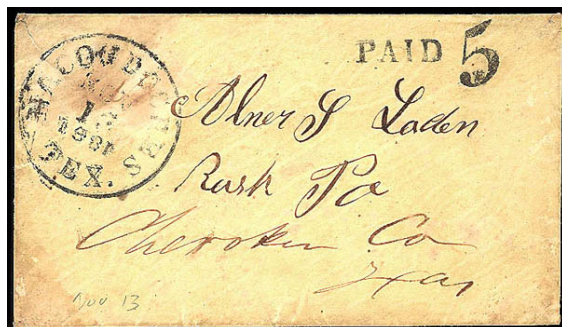 PAID 5
NACOGDOCHES
13
1861
TEX.
Abner S Laden
Rusk Po
Cherokee Co
Texas
Nov 13